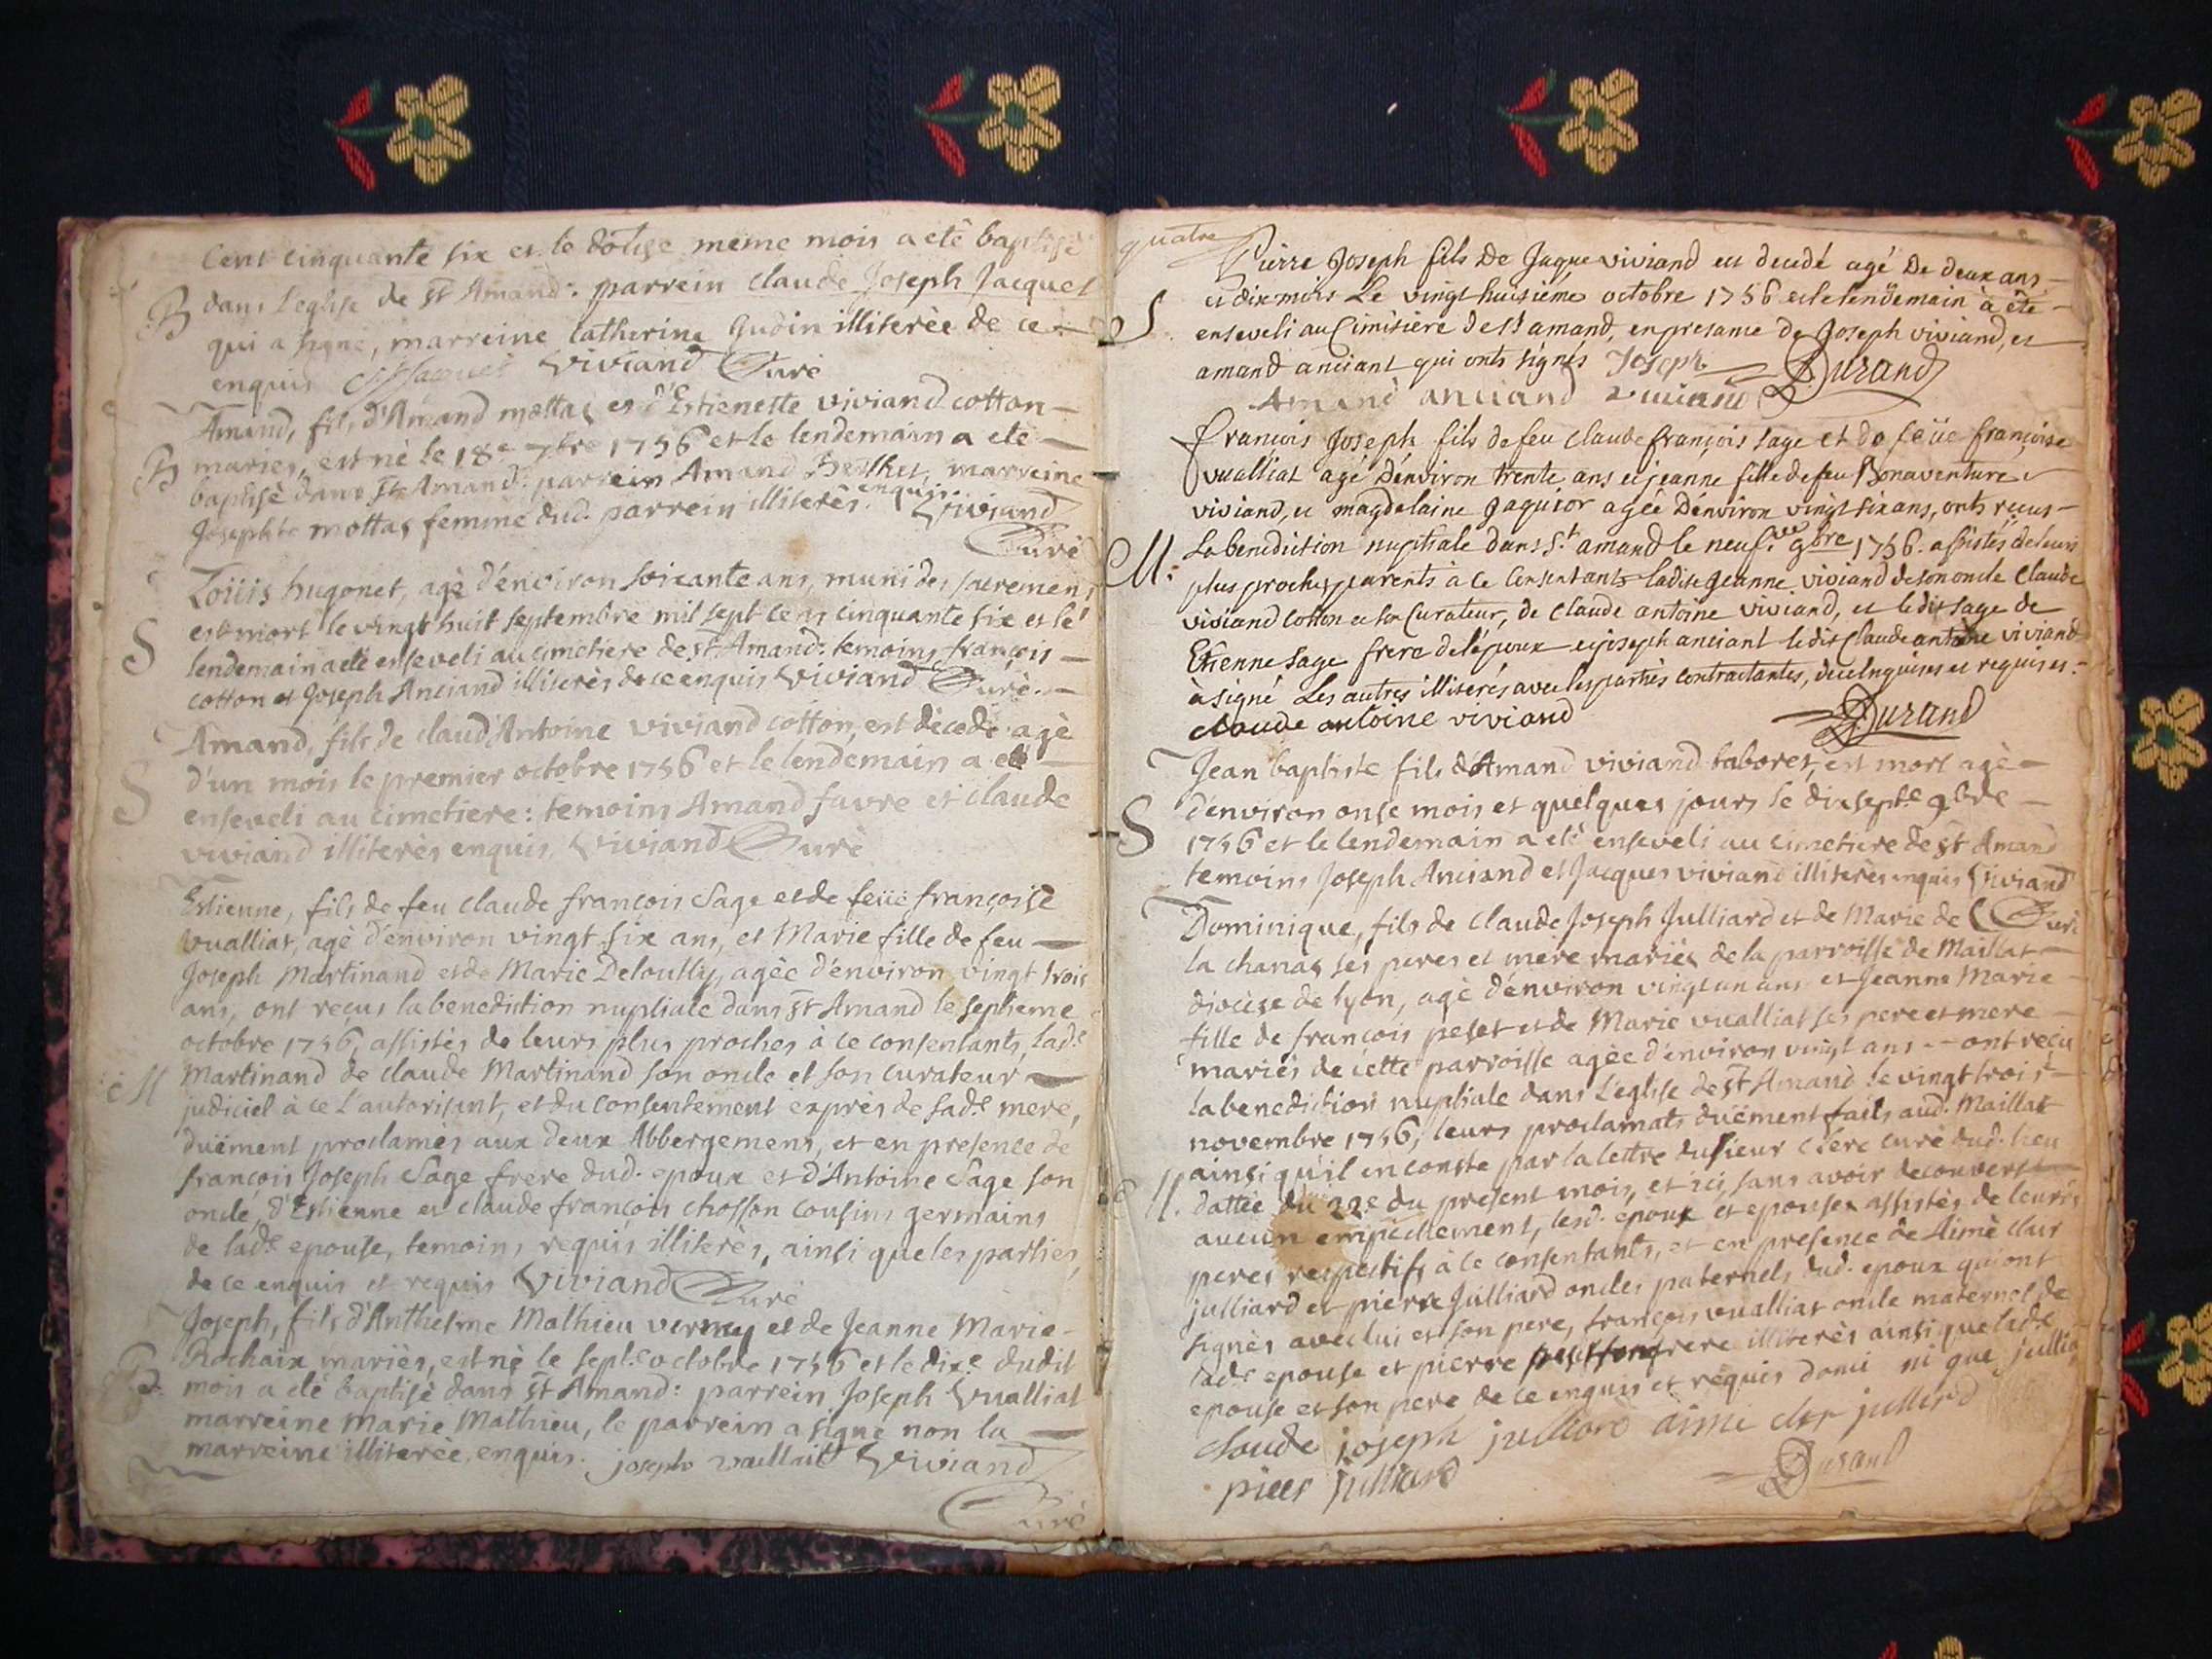 Cent cinquante six et le dousse même mois a etê baptisè
B dans l'eglise de st Amand: parrein claude Joseph Jacquet
qui a signé, marreine Catherine Gudin illiterèe de ce
enquis Viviand Curè
Amand, fils d'Amand mottas et d'Estienette viviand cotton
B mariès, est nè le 18e 7bre 1756 et le lendemain a etè
baptisè dans st Amand: parrein Amand Berthet, marreine
Josephte mottas femme dud. parrein illiterès enquis. Viviand
Curè
Loüis hugonet, agè d'environ soixante ans, muni des sacremens
S est mort le vingt huit septembre mil sept cens cinquante six et le
lendemain a etè enseveli au cimetiere de st Amand: temoins françois
cotton et Joseph Anciand illiterès de ce enquis Viviand Curè.
Amand, fils de claud'Antoine viviand cotton, est dècedè agè
S d'un mois le premier octobre 1756 et le lendemain a etè
enseveli au cimetiere: temoins Amand favre et claude
viviand illiterès enquis. Viviand Curè
Estienne, fils de feu claude françois Sage et de feüe françoise
vualliat, agè d'environ vingt six ans, et Marie fille de feu
Joseph Martinand et de Marie Deloully, agèe d'environ vingt trois
ans, ont reçus la benediction nuptiale dans st Amand le septieme
octobre 1756, assistès de leurs plus proches à ce consentants, lad.e
M Martinand de claude Martinand son oncle et son curateur
judiciel à ce l'autorisant, et du consentement exprès de sad.e mere,
duëment proclamès aux deux Abbergemens, et en presence de
françois Joseph Sage frere dud. epoux et d'Antoine Sage son
oncle, d'Estienne et claude françois chosson cousins germains
de lad.e epouse, temoins requis illiterès, ainsi que les parties,
de ce enquis et requis Viviand Curè
Joseph, fils d'Anthelme Mathieu vermey et de Jeanne Marie
B Rochaix mariès, est nè le sept.e octobre 1756 et le dix.e dudit
mois a etè baptisè dans st Amand: parrein Joseph Vualliat
marreine Marie Mathieu, le parrein a signè non la
marreine illiterèe, enquis. joseph vaulliait Viviand
Curè
quatre
Pierre Joseph fils De Jaque viviand est decedé agé De deux ans
S et dix mois Le vingt huisiéme octobre 1756 et le lendemain à ête
enseveli au Cimitiere de st amand, en presance de Joseph viviand, et
amand anciant qui onts signés Joseph Durand
Amand anciand viviand
François Joseph fils de feu Claude françois sage et de feüe françoise
vualliat agé D'environ trente ans et jeanne fille de feu Bonaventure
viviand, et magdelaine Jaquior agée D'environ vingt six ans, onts reçus
M. La benediction nuptiale dans s.t amand le neuf.me 9bre 1756. assistés de leurs
plus proches parents à ce Consentants ladite Jeanne viviand de son oncle Claude
viviand Cotton et son Curateur, de Claude antoine viviand, et ledit sage de
Etienne sage frere de l'époux et joseph anciant ledit Claude antoine viviand
à signé Les autres illiterés avec les partiés Contractantes, de ce Enquises et requises.
claude antoine viviand Durand
Jean baptiste fils d'Amand viviand taboret, est mort agè
S d'environ onse mois et quelques jours le dix sept.e 9bre
1756 et le lendemain a etè enseveli au cimetiere de st Amand
temoins Joseph Anciand et Jacques viviand illiterès enquis Viviand
Curè
Dominique, fils de claude Joseph Julliard et de Marie de
la chanas ses peres et mere mariès de la parroisse de Maillat
diocèse de lyon, agè d'environ vingt un ans et Jeanne Marie
fille de françois peset et de Marie vualliat ses pere et mere
mariès de cette parroisse agèe d'environ vingt ans ont reçu
la benediction nuptiale dans l'eglise de st Amand le vingt trois
novembre 1756, leurs proclamats duëment faits aud. Maillat
ainsi qu'il en conste par la lettre du sieur Clerc curè dud. lieu
M. dattée du 22e du present mois, et ici sans avoir decouvert
aucun empechement, lesd. epoux et epouse assistès de leurs
peres respectifs à ce consentants, et en presence de Aimè clair
julliard et pierre Julliard oncles paternels dud. epoux qui ont
signès avec lui et son pere, françois vualliat oncle maternel de
lad.e epouse et pierre peset son frere illiterès ainsi que lad.e
epouse et son pere de ce enquis et requis domi ni que jullia
claude joseph julliard aime cler julliard
pierr julliard Durand